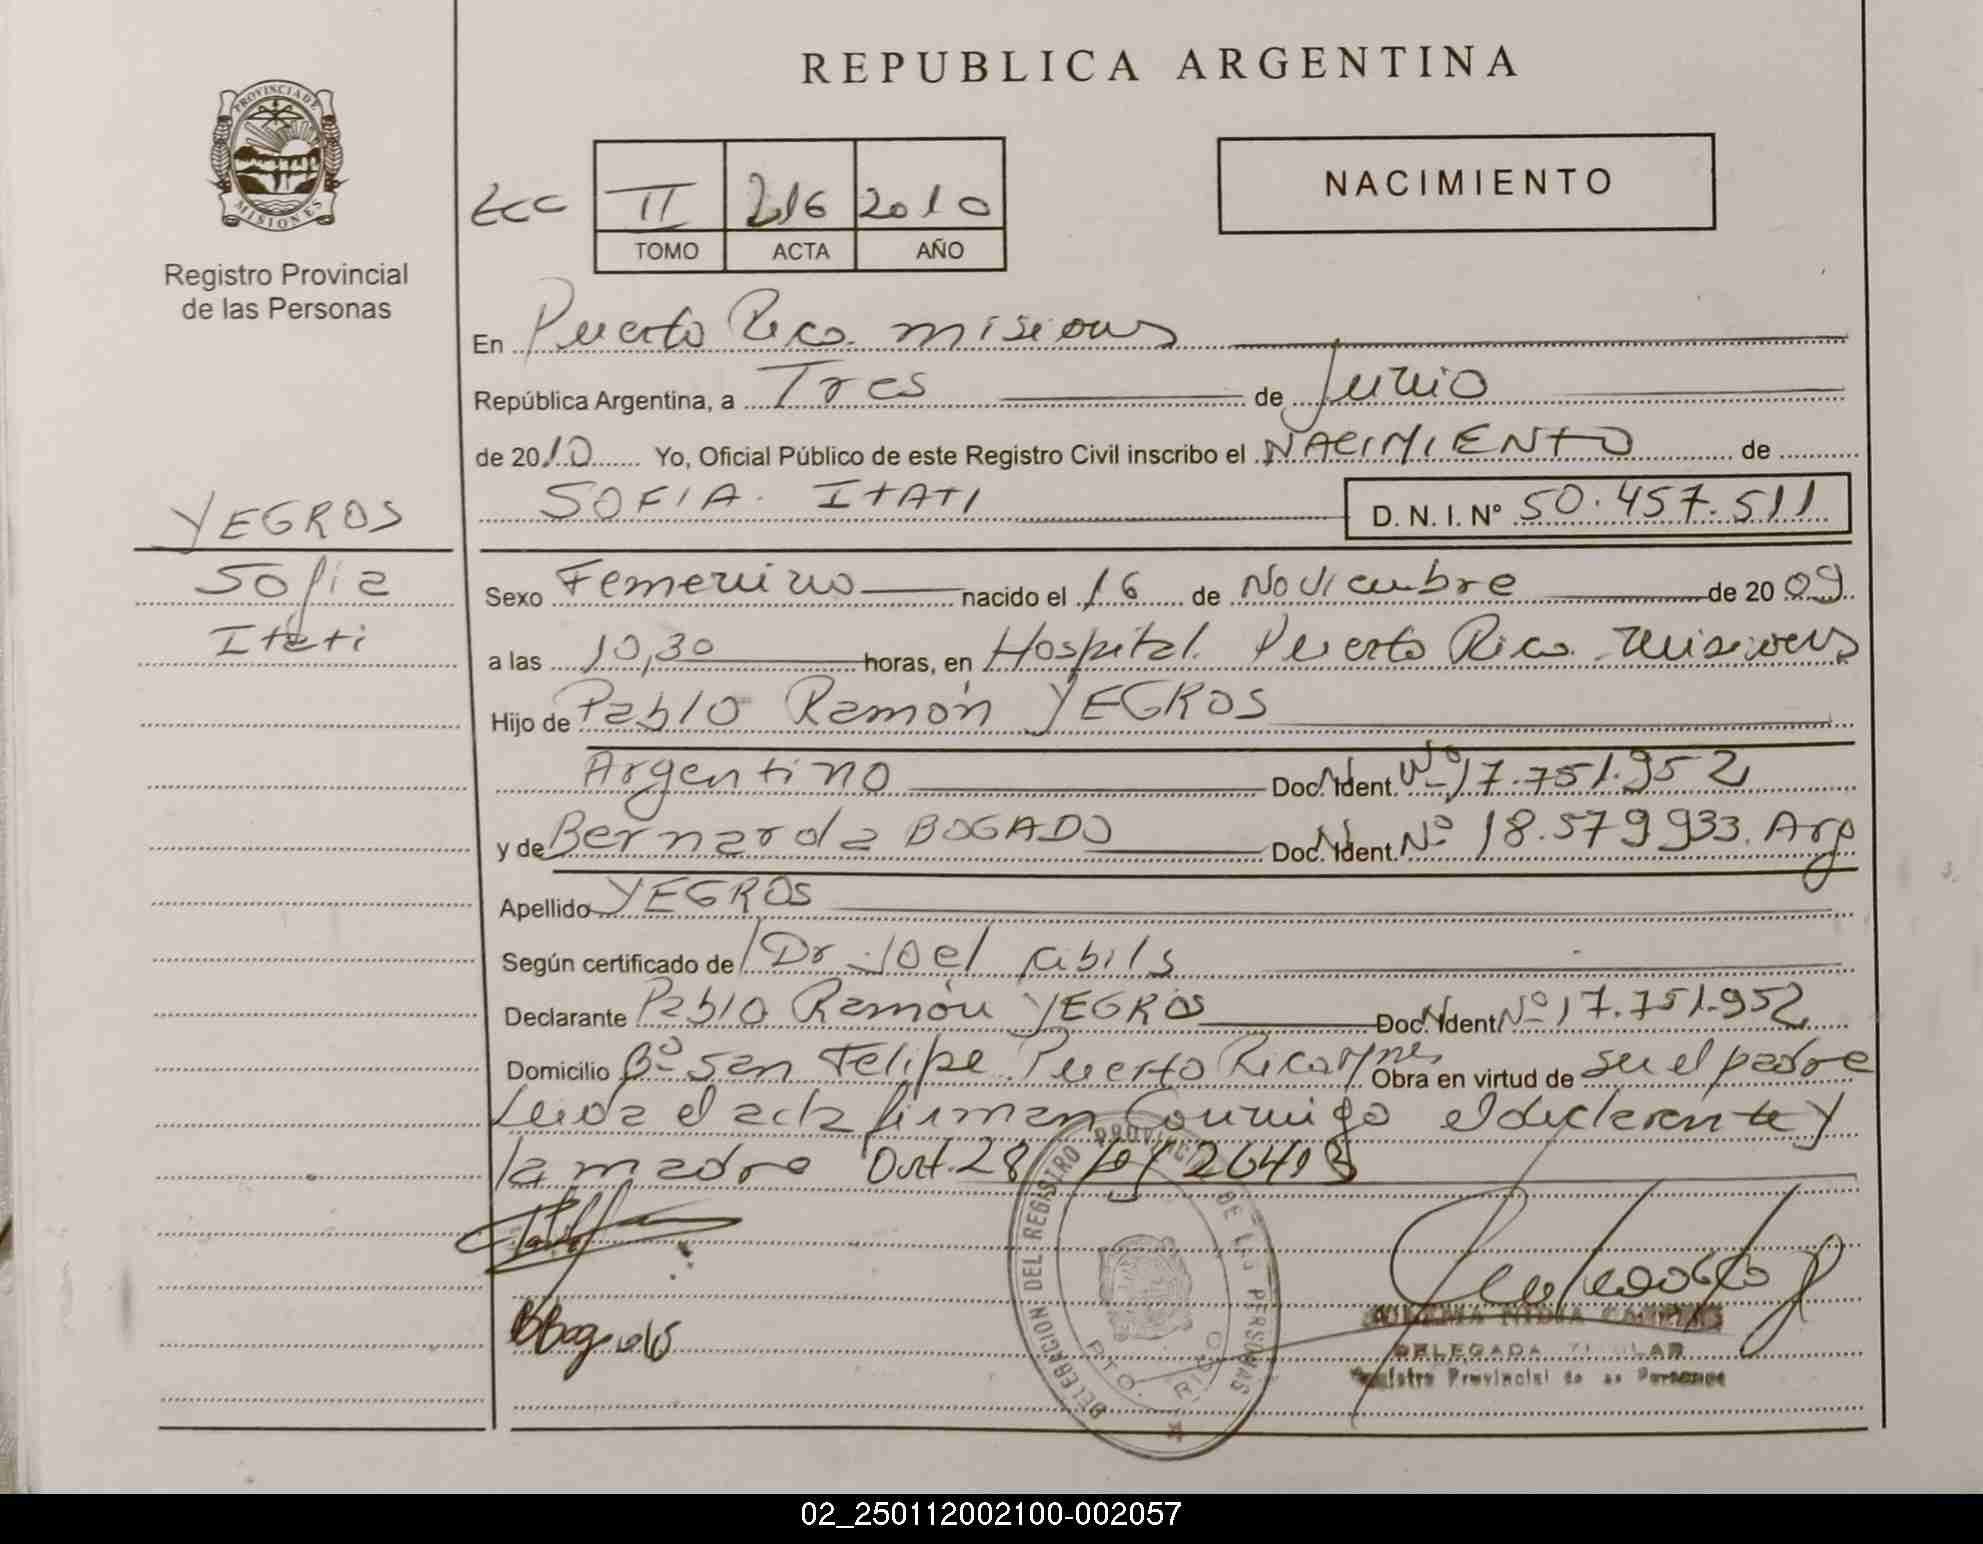 REPUBLICA ARGENTINA
PROVINCIA DE
MISIONES
Registro Provincial
de las Personas
II 216 2010
TOMO ACTA AÑO
NACIMIENTO
En Puerto Rico. misiones
República Argentina, a Tres de Junio
de 2010 Yo, Oficial Público de este Registro Civil inscribo el NACIMIENTO de
SOFIA. ITATI D. N. I. Nº 50.457.511
YEGROS
Sofia
Itati
Sexo Femenino nacido el 16 de Noviembre de 2009
a las 10,30 horas, en Hospital. Puerto Rico. misiones
Hijo de Pablo Ramón YEGROS
Argentino Doc. Ident. Nº 17.751.952
y de Bernarda BOGADO Doc. Ident. Nº 18.579933. Arg
Apellido YEGROS
Según certificado de Dr Joel
Declarante Pablo Ramón YEGROS Doc. Ident Nº 17.751.952
Domicilio Bº San Felipe. Puerto Rico Mnes Obra en virtud de su el padre
Leida el acta firman Conmigo el declarante y
la madre 28 26413
DELEGACION DEL REGISTRO PROVINCIAL DE LAS PERSONAS
PTO. RICO
BBogado
DELEGADA TITULAR
Registro Provincial de las Personas
02_250112002100-002057